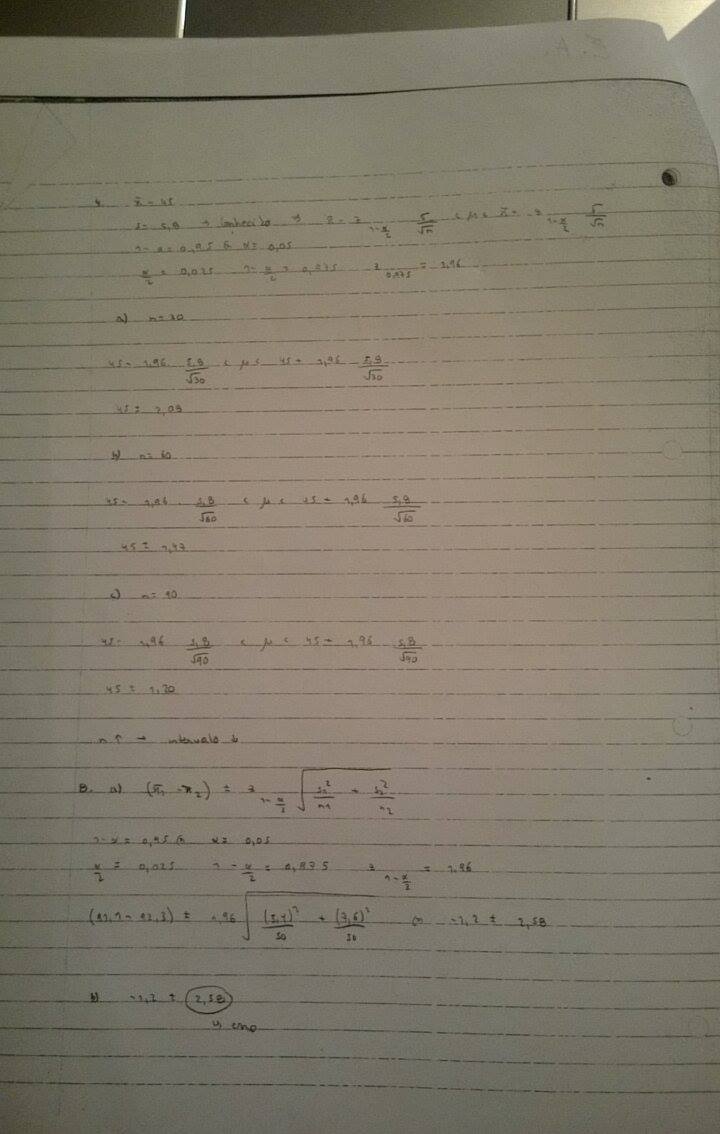 4. x̄ = 45
s = 5,8 → conhecido → x̄ - z 1-α/2 5/√n < μ < x̄ + z 1-α/2 5/√n
1-α = 0,95 ⇔ α = 0,05
α/2 = 0,025 1-α/2 = 0,975 z 0,975 = 1,96
a) n = 30
45 - 1,96 5,8/√30 < μ < 45 + 1,96 5,8/√30
45 ± 2,08
b) n = 60
45 - 1,96 5,8/√60 < μ < 45 + 1,96 5,8/√60
45 ± 1,47
c) n = 90
45 - 1,96 5,8/√90 < μ < 45 + 1,96 5,8/√90
45 ± 1,20
n ↑ → intervalo ↓
8. a) (x̄1 - x̄2) ± z 1-α/2 √(s1²/n1 + s2²/n2)
1-α = 0,95 ⇔ α = 0,05
α/2 = 0,025 1-α/2 = 0,975 z 1-α/2 = 1,96
± 1,96 ⇔ -1,2 ± 2,58
b) -1,2 ± 2,58
↳ erro